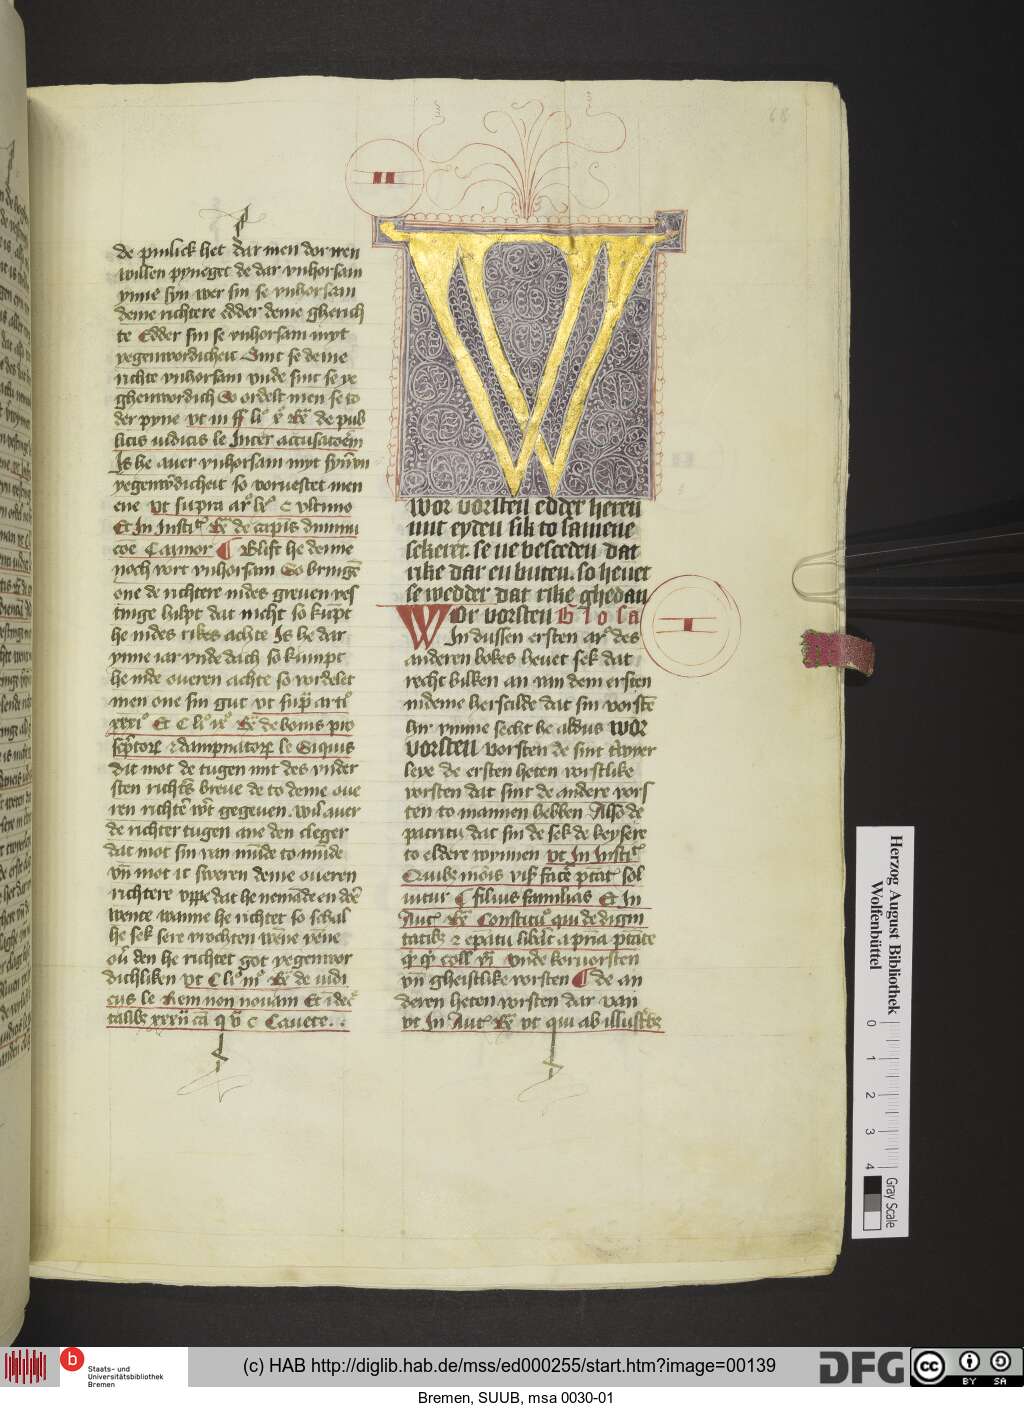 68
II
de pinlickhet dar men dorwen
willen pyneget de dar vnhorsam
ynne syn wer sin se vnhorsam
deme richtere edder deme gherich
te Edder sin se vnhorsam myt
yegenwordicheit Sint se deme
richte vnhorsam vnde sint se ye
ghenwordich So ordelt men se to
der pyne vt in ff li de pub
licis iudiciis le Inter accusatorem
Is he auer vnhorsam myt
yegenwerdicheit so voruestet men
ene vt supra c vltimo
Et In Insti de
¶ Blift he denne
noch vort vnhorsam So bringe
one de richtere in des greuen ves
tinge halpt dat nicht so kupt
he in des rikes achte Is he dar
ynne iar vnde dach so kumpt
he in de oueren achte so vordelet
men one sin gut vt supra arti
xxxi Et C li ix de bonis pro
scriptorum dampnatorum le Siquis
dit mot de tugen mit des vnder
sten richters breue de to deme oue
ren richte wert gegeuen. Wil auer
de richter tugen ane den cleger
dat mot sin van munde to munde
vn mot it sweren deme oueren
richtere vppe dat he nemande en der
wente wanne he richtet so schal
he sek sere vrochten wene
ou den he richtet got yegenwor
dichliken vt C li iii de iudi
ciis le Rem non nouam Et i dec
talibus xxxii ca q v c Cauete
W
Wor vorsten edder heren
mit eyden sik to samene
sekeret. se ne besceden dat
rike dar en buten. so heuet
se wedder dat rike ghedan
Wor vorsten Glosa
In dussen ersten ar des
anderen bokes heuet sek dat
recht bilken an van dem ersten
in deme herscilde dat sin vorsten
hir ynne secht he aldus Wor
vorsten vorsten de sint twyer
leye de ersten heten vorstlike
vorsten dat sint de andere vors
ten to mannen hebben Also de
patricii dat sin de sek de keysere
to eldere wynnen vt In Insti
Quibus modis
uitur ¶ filius familias Et In
Aut Constitu qui de dignita
tatibus
vnde korvorsten
vn gheistlike vorsten ¶ de an
deren heten vorsten dar van
vt In Aut vt qui ab illustribus
I
Herzog August Bibliothek
Wolfenbüttel
0 1 2 3 4
Gray Scale
b
Staats- und
Universitätsbibliothek
Bremen
(c) HAB http://diglib.hab.de/mss/ed000255/start.htm?image=00139
DFG
cc BY SA
Bremen, SUUB, msa 0030-01